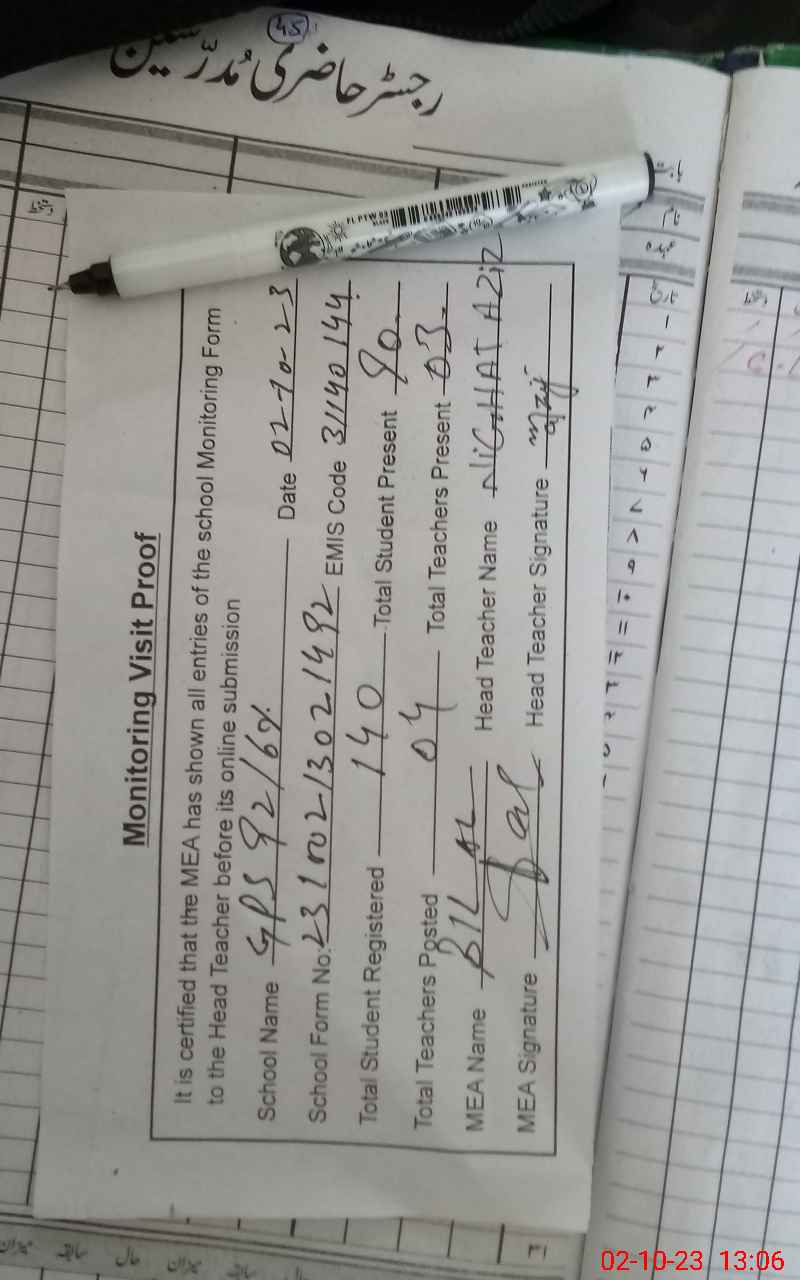 45
رجسٹر حاضری مُدرّسین
Monitoring Visit Proof
It is certified that the MEA has shown all entries of the school Monitoring Form
to the Head Teacher before its online submission
School Name GPS 92/6R Date 02-10-23
School Form No: 23100213021492 EMIS Code 31140144
Total Student Registered 140 Total Student Present 90
Total Teachers Posted 04 Total Teachers Present 03
MEA Name BILAL Head Teacher Name NIGHAT AZIZ
MEA Signature Head Teacher Signature
نام
عہدہ
تاریخ
02-10-23 13:06